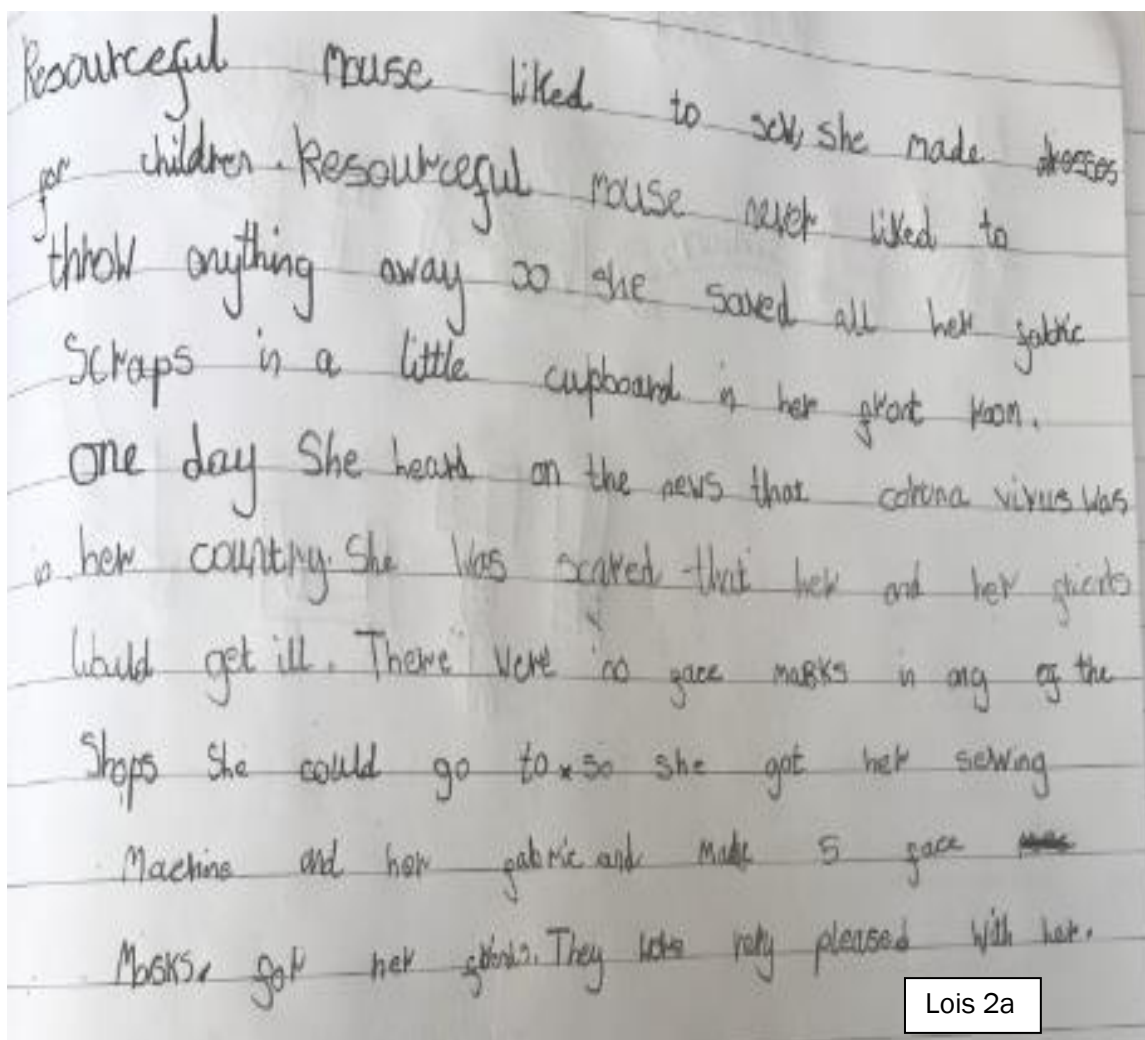 Resourceful mouse liked to sew, she made dresses
for children. Resourceful mouse never liked to
throw anything away so she saved all her fabric
Scraps in a little cupboard in her front room.
one day She heard on the news that corona virus was
in her country. She was scared that her and her friends
would get ill. There were no face masks in any of the
Shops she could go to so she got her sewing
Machine and her fabric and made 5 face
Masks, for her friends. They were very pleased with her.
Lois 2a